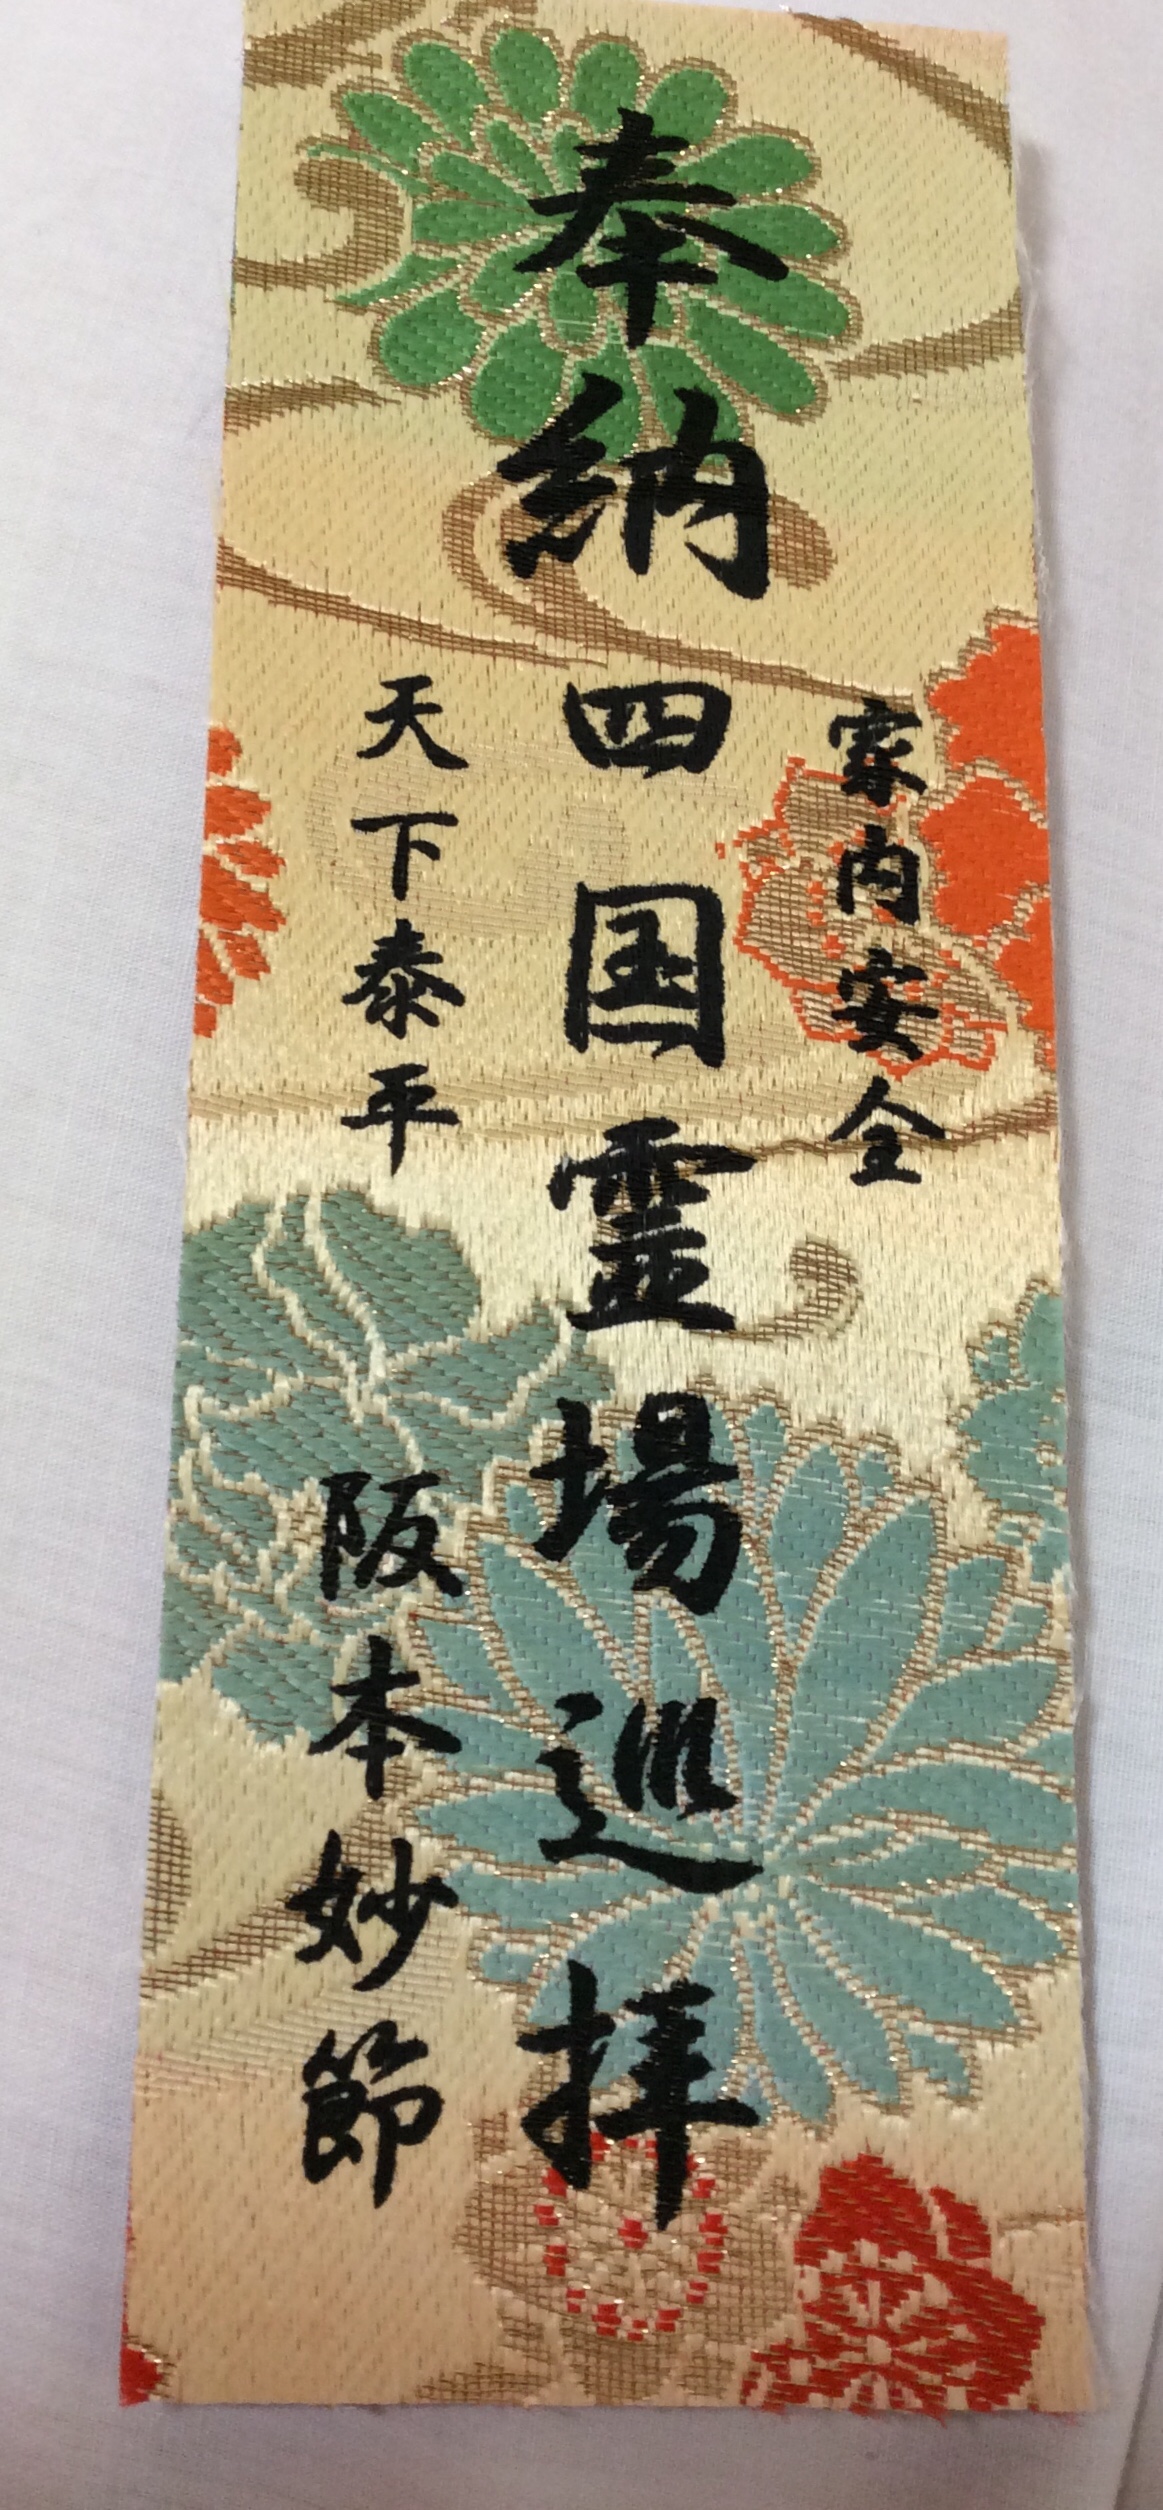 家内安全
奉納四国霊場巡拝
天下泰平
阪本妙節